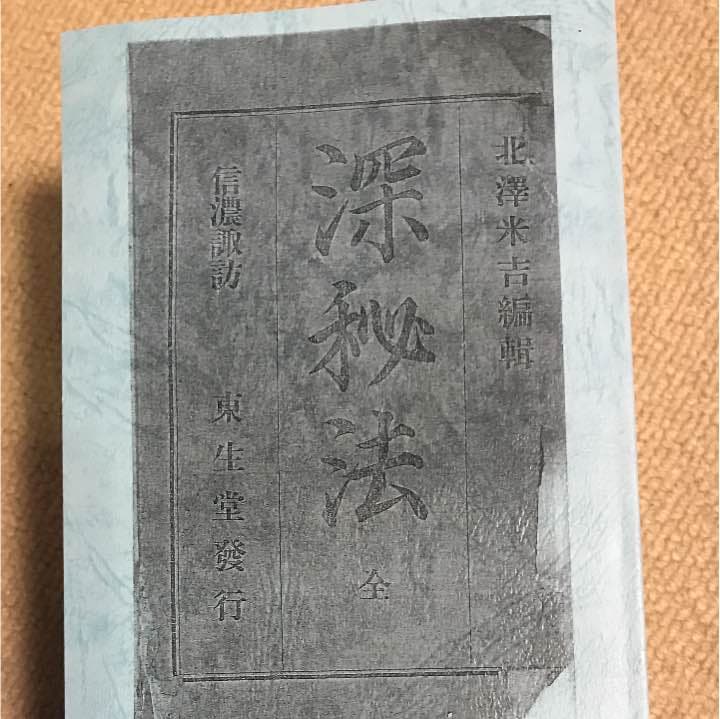 北澤米吉編輯
深秘法 全
信濃諏訪 東生堂發行